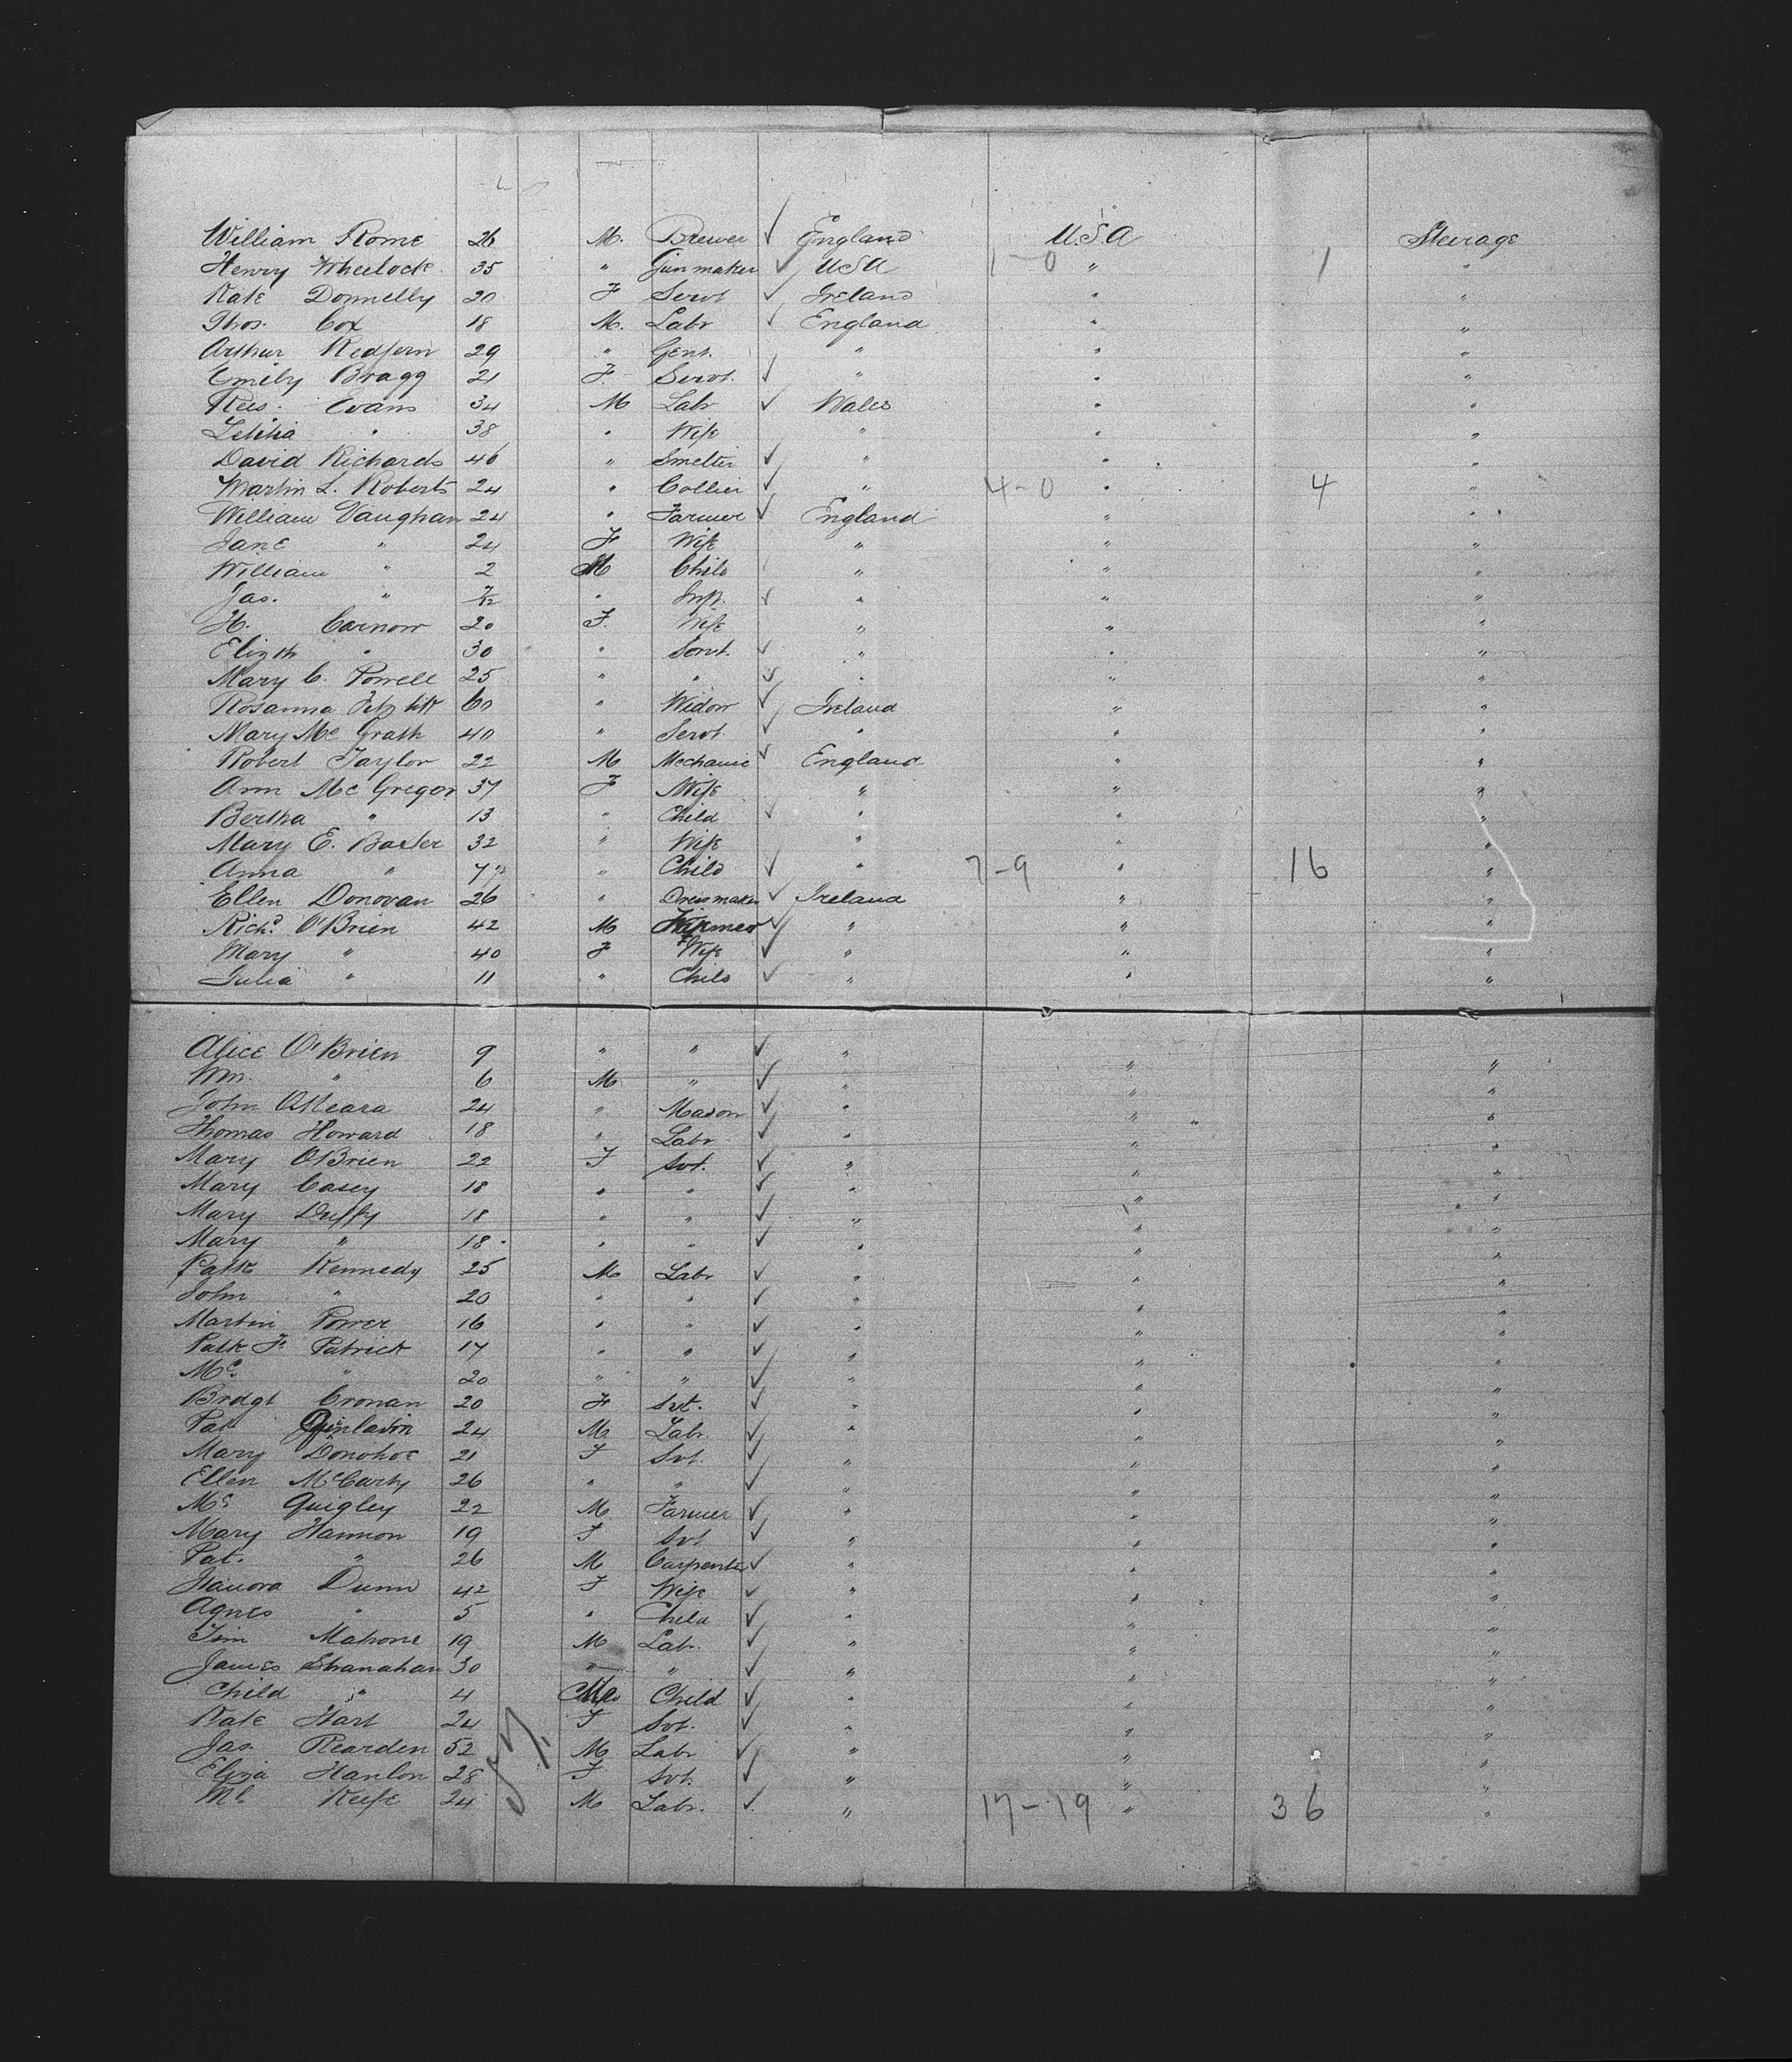 William Rome 26 M. Brewer ✓ England U.S.A Steerage
Henry Wheelock 35 " Gun maker ✓ USA 1-0 " 1 "
Kate Donnelly 20 F Servt ✓ Ireland " "
Thos. Cox 18 M. Labr ✓ England " "
Arthur Redfern 29 " Gent. " " "
Emily Bragg 21 F. Servt. ✓ " " "
Rees. Evans 34 M Labr ✓ Wales " "
Letitia " 38 " Wife " " "
David Richards 46 " Smelter ✓ " " "
Martin L. Roberts 24 " Collier ✓ " 4-0 " 4 "
William Vaughan 24 " Farmer ✓ England " "
Jane " 24 F Wife " " "
William " 2 M Child " " "
Jas. " 7/12 " Inft. ✓ " " "
H. Carnow 20 F. Wife " " "
Elizth " 30 " Servt. ✓ " " "
Mary C. Powell 25 " " ✓ " " "
Rosanna 60 " Widow ✓ Ireland " "
Mary Mc Grath 40 " Servt ✓ " " "
Robert Taylor 22 M Mechanic ✓ England " "
Ann Mc Gregor 37 F Wife " " "
Bertha " 13 " Child ✓ " " "
Mary E. Baxter 32 " Wife " " "
Anna " 7 " Child ✓ " 7-9 " 16 "
Ellen Donovan 26 " Dressmaker ✓ Ireland " "
Richd. O'Brien 42 M ✓ " " "
Mary " 40 F Wife ✓ " " "
Julia " 11 " Child ✓ " " "
Alice O'Brien 9 " " ✓ " " "
Wm. " 6 M " ✓ " " "
John O'Meara 24 " Mason ✓ " " "
Thomas Howard 18 " Labr ✓ " " "
Mary O'Brien 22 F Svt. ✓ " " "
Mary Casey 18 " " ✓ " " "
Mary Duffy 18 " " ✓ " " "
Mary " 18 " " ✓ " " "
Patk Kennedy 25 M Labr ✓ " " "
John " 20 " " ✓ " " "
Martin Power 16 " " ✓ " " "
Patk Fz Patrick 17 " " ✓ " " "
" 20 " " ✓ " " "
Brdgt Cronan 20 F Svt. ✓ " " "
Pat Quinlavin 24 M Labr ✓ " " "
Mary Donohoe 21 F Svt. ✓ " " "
Ellen McCarty 26 " " ✓ " " "
Quigley 22 M Farmer ✓ " " "
Mary Hannon 19 F Svt ✓ " " "
Pat. " 26 M Carpenter ✓ " " "
Hanora Dunn 42 F Wife ✓ " " "
Agnes " 5 " Child ✓ " " "
Tim Mahone 19 M Labr. ✓ " " "
James Shanahan 30 " " ✓ " " "
Child " 4 Child ✓ " " "
Kate Hart 24 F Svt. ✓ " " "
Jas. Rearden 52 M Labr ✓ " " "
Eliza Hanlon 28 F Svt. ✓ " " "
Ml. Keefe 24 M Labr. ✓ " 17-19 " 36 "